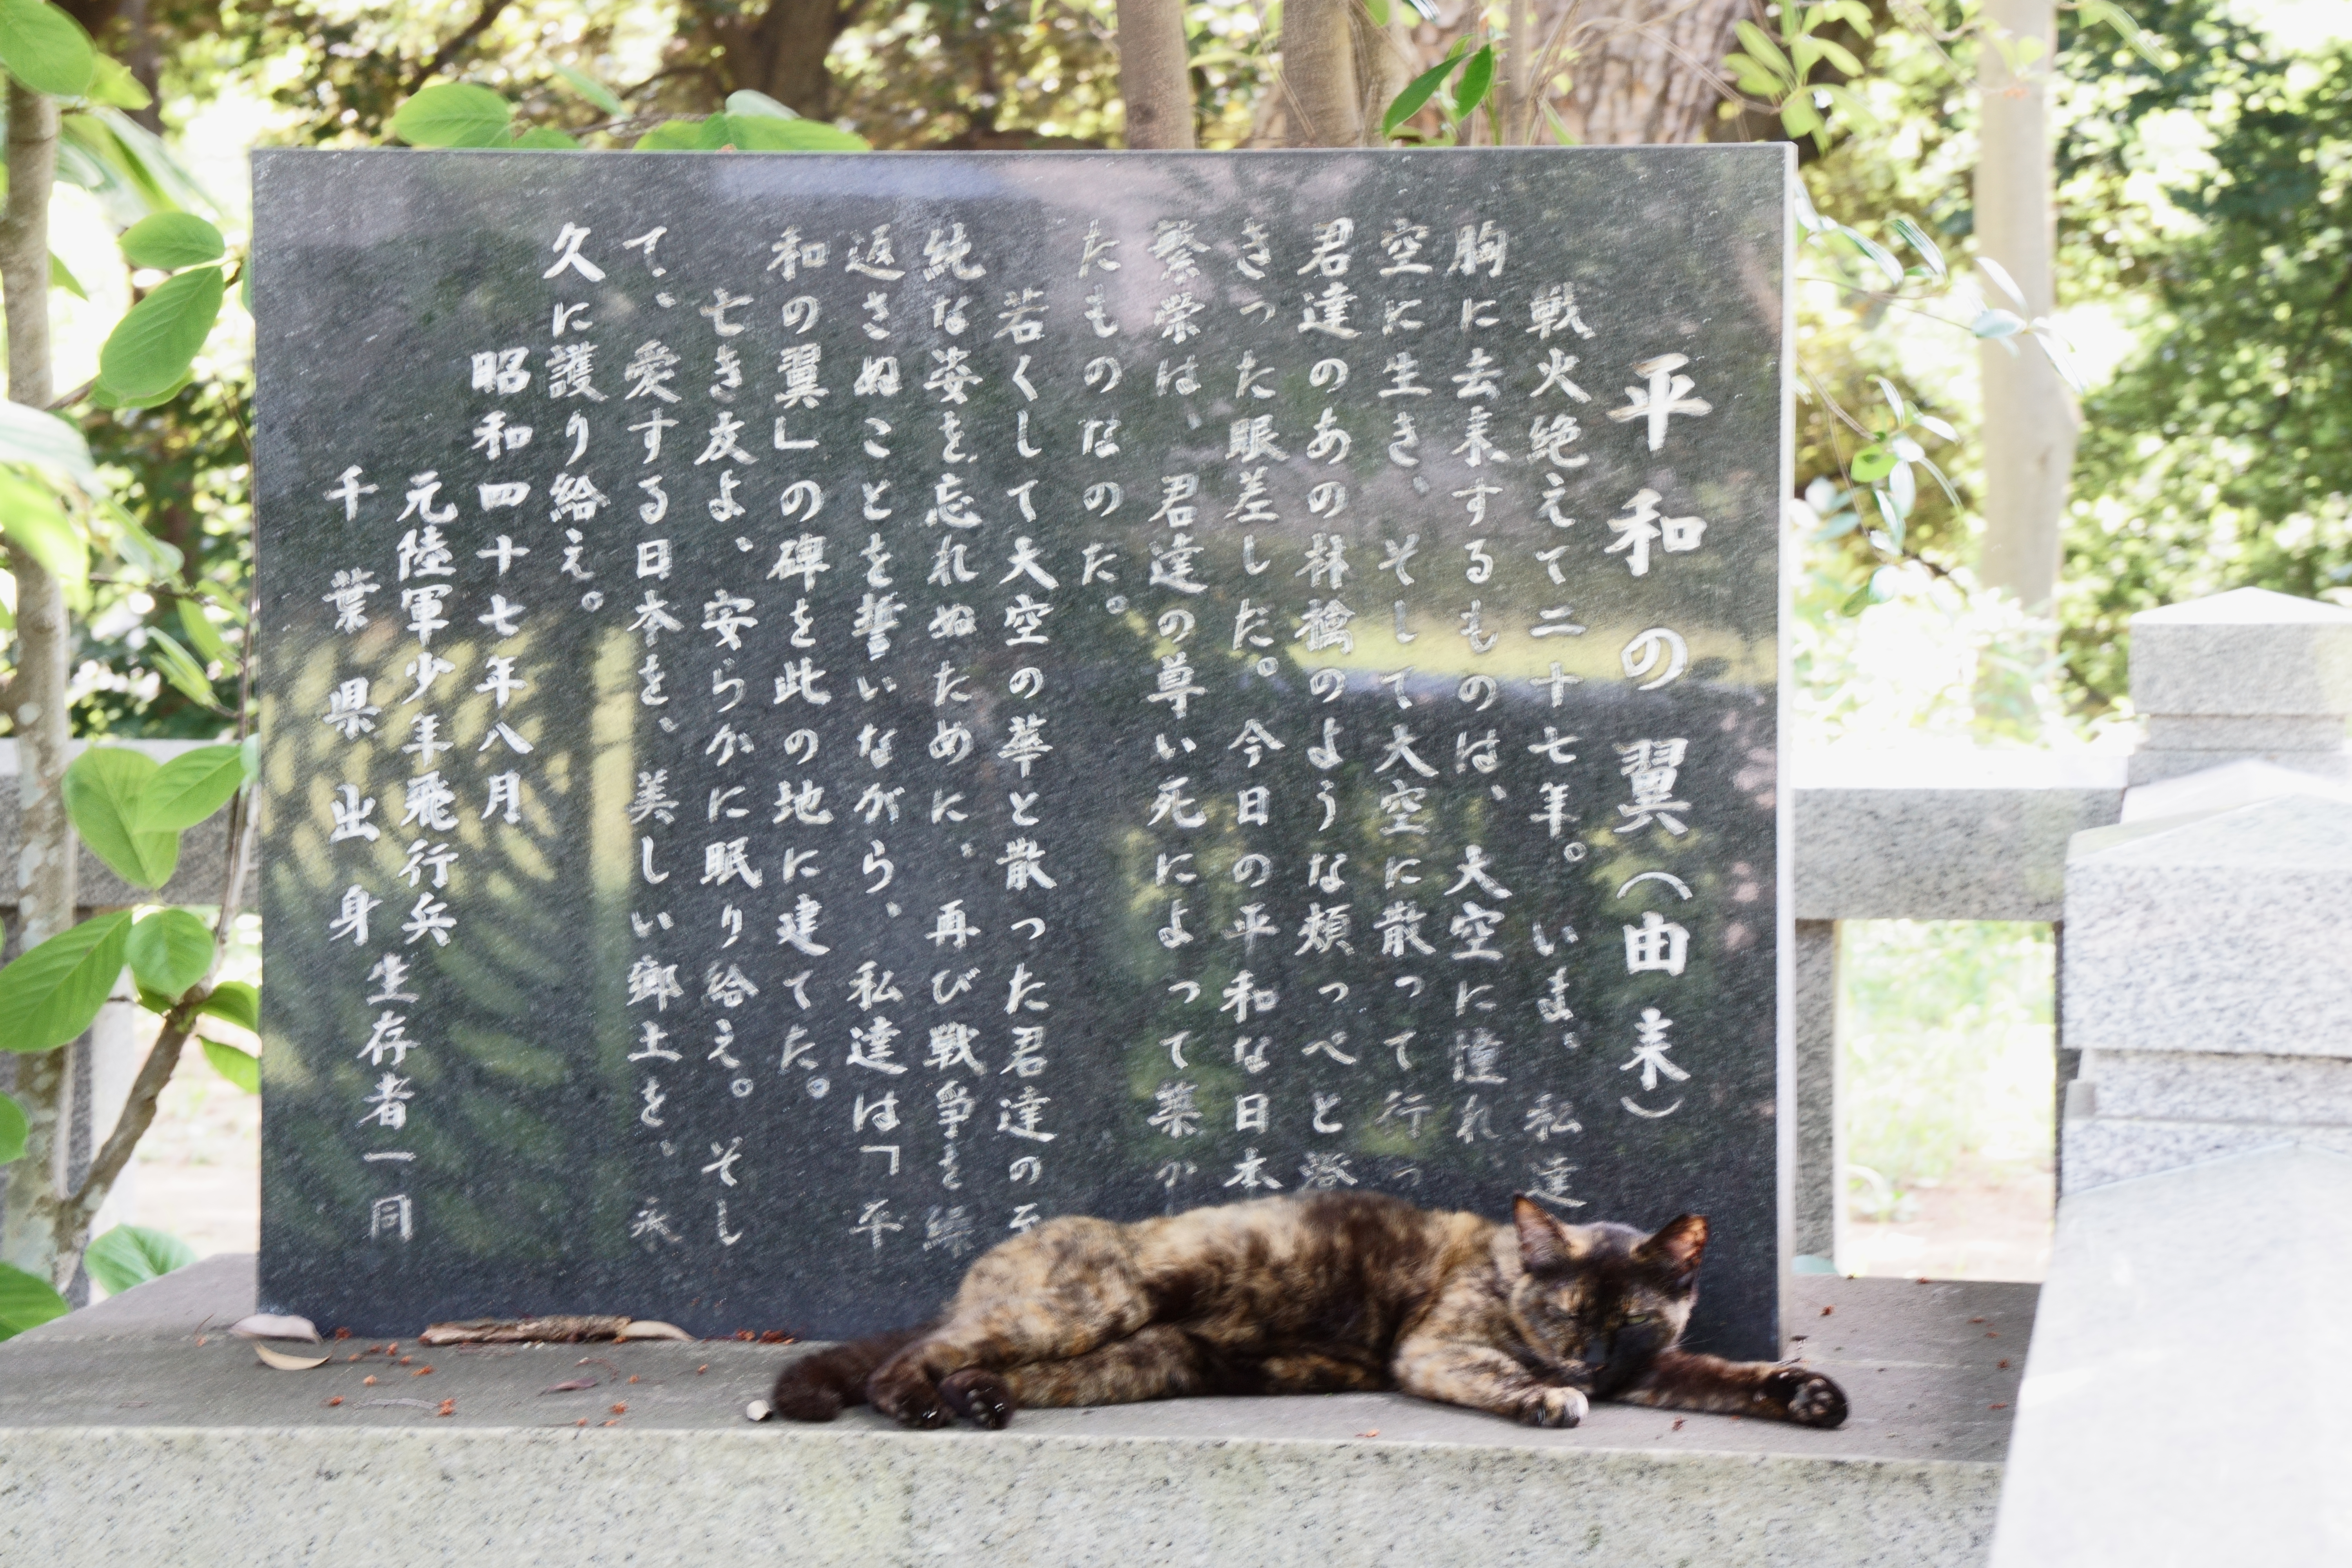 平和の翼(由来)
戦火絶えて二十七年。いま、私達
胸に去来するものは、大空に憧れ、
空に生き、そして大空に散って行っ
君達のあの林檎のような頬っぺと
きった眼差しだ。今日の平和な日本
繁栄は、君達の尊い死によって築か
たものなのだ。
若くして大空の華と散った君達の
純な姿を忘れぬために、再び戦争を繰
返さぬことを誓いながら、私達は「平
和の翼」の碑を此の地に建てた。
亡き友よ、安らかに眠り給え。そし
て、愛する日本を、美しい郷土を、永
久に護り給え。
昭和四十七年八月
元陸軍少年飛行兵
千葉県出身
生存者一同